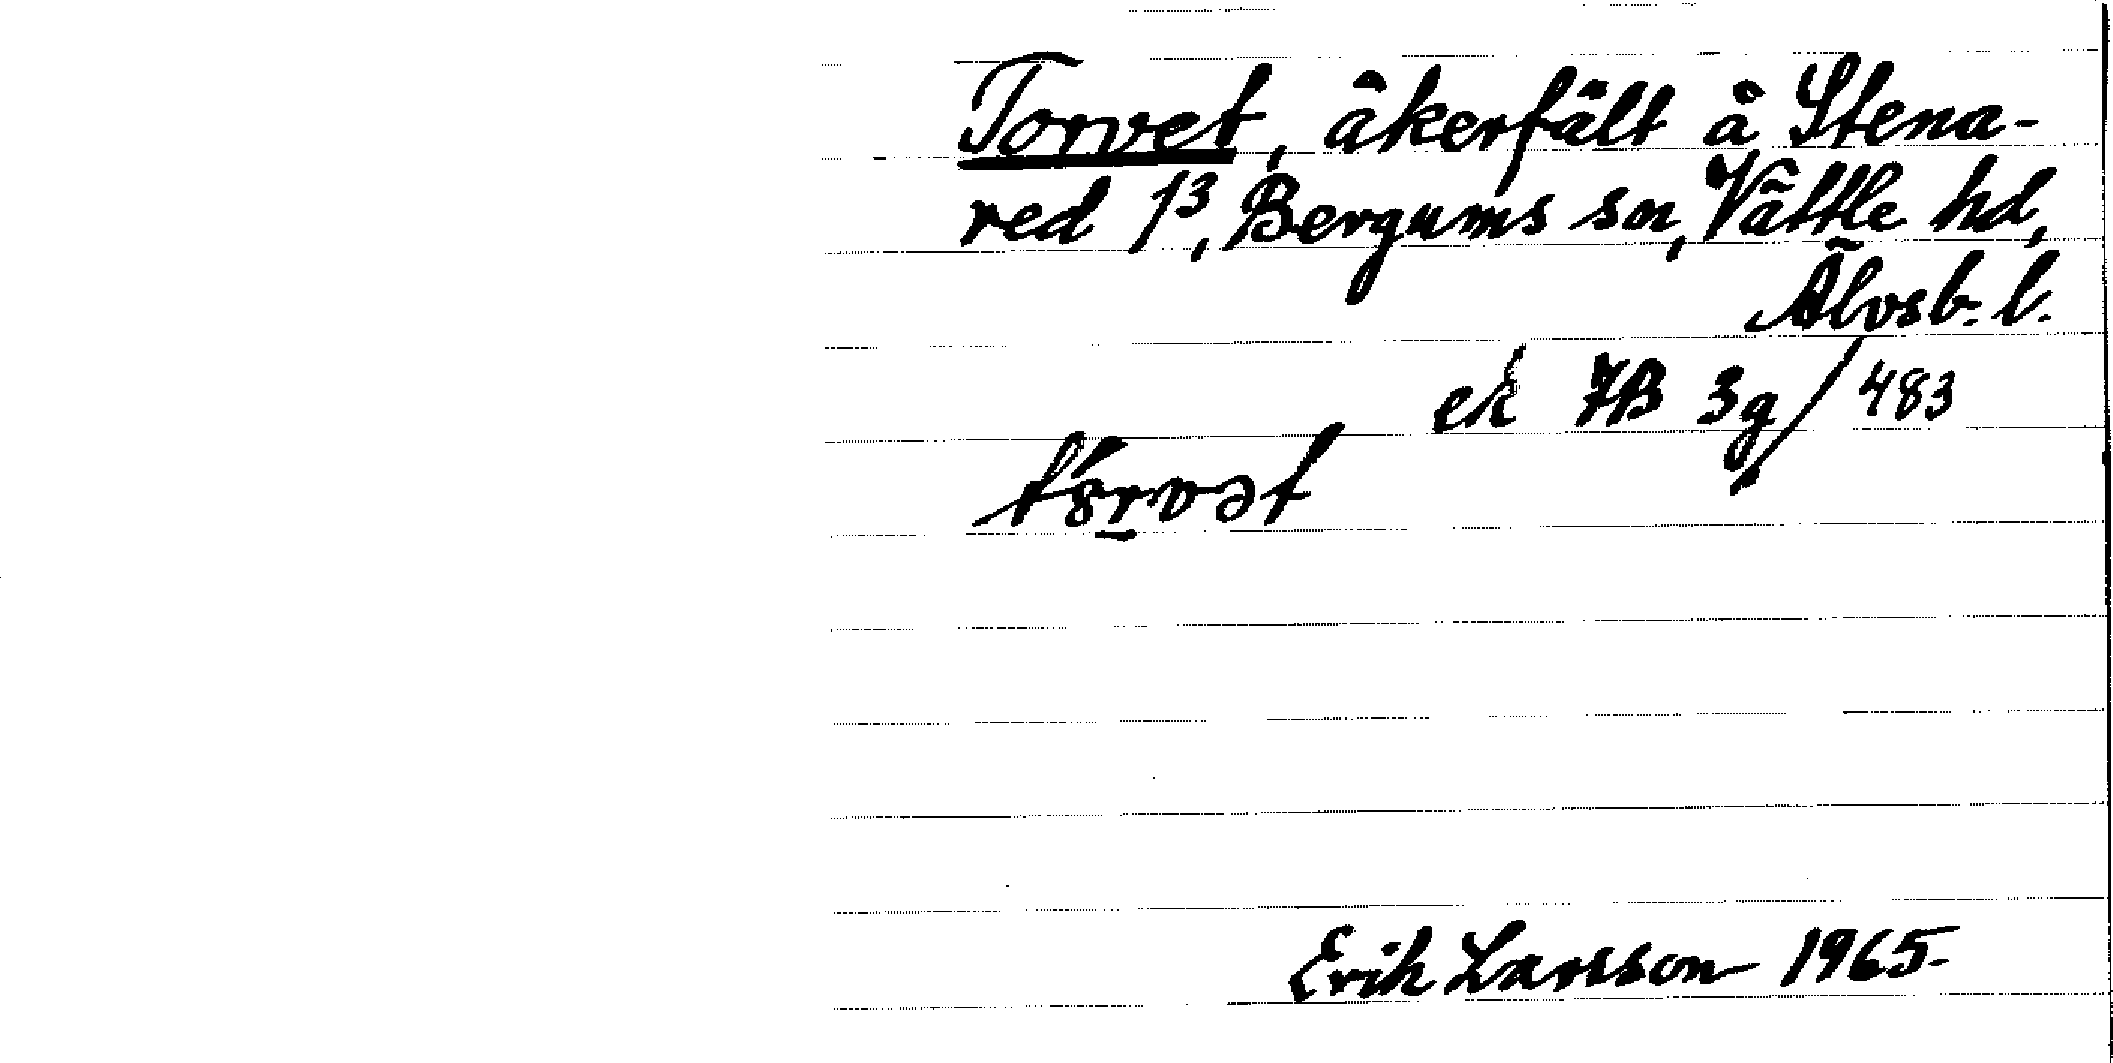 Torvet, åkerfält å Stena-
red 1³, Bergums sn, Vättle hd,
Älvsb. l.
ek 7B 3g/483
Erik Larsson 1965